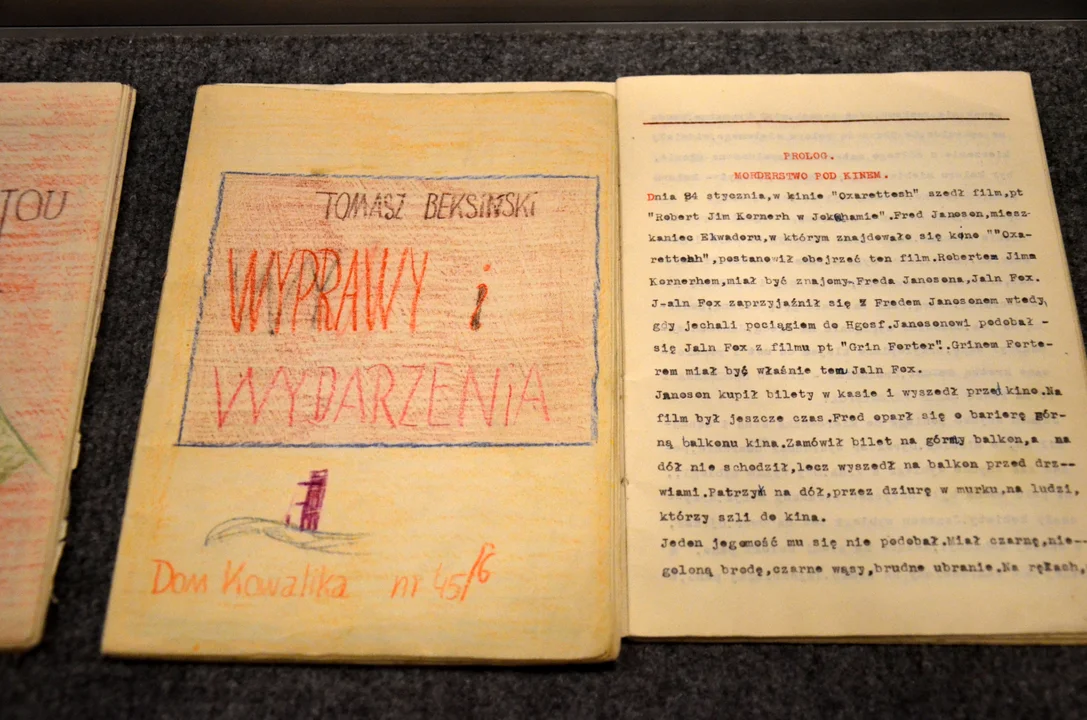 TOU
TOMASZ BEKSIŃSKI
WYPRAWY i
WYDARZENIA
Dom Kowalika nr 45/6
PROLOG.
MORDERSTWO POD KINEM.
Dnia 84 stycznia,w kinie "Oxarettesh" szedł film,pt
"Robert Jim Kornerh w Jokohamie".Fred Janoson,miesz-
kaniec Ekwadoru,w którym znajdowało się kono ""Oxa-
rettehh",postanowił obejrzeć ten film.Robertem Jima
Kornerhem,miał być znajomy Freda Janosona,Jaln Fox.
J-aln Fox zaprzyjaźnił się z Fredem Janosonem wtedy,
gdy jechali pociągiem do Hgosf.Janosonowi podobał -
się Jaln Fox z filmu pt "Grin Forter".Grinem Forte-
rem miał być właśnie ten Jaln Fox.
Janoson kupił bilety w kasie i wyszedł przed kino.Na
film był jeszcze czas.Fred oparł się o barierę gór-
ną balkonu kina.Zamówił bilet na górny balkon,a na
dół nie schodził,lecz wyszedł na balkon przed drz--
wiami.Patrzył na dół,przez dziurę w murku,na ludzi,
którzy szli do kina.
Jeden jegomość mu się nie podobał.Miał czarnę,nie--
goloną brodę,czarne wąsy,brudne ubranie.Na rękach,